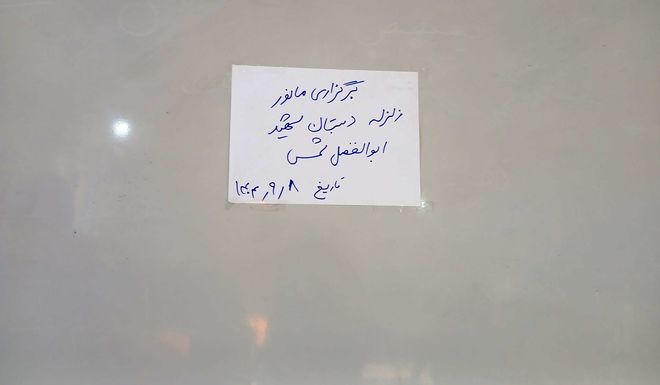 برگزاری مانور
زلزله دبستان شهید
ابوالفضل شمس
تاریخ ۱۴۰۴٫۹٫۸